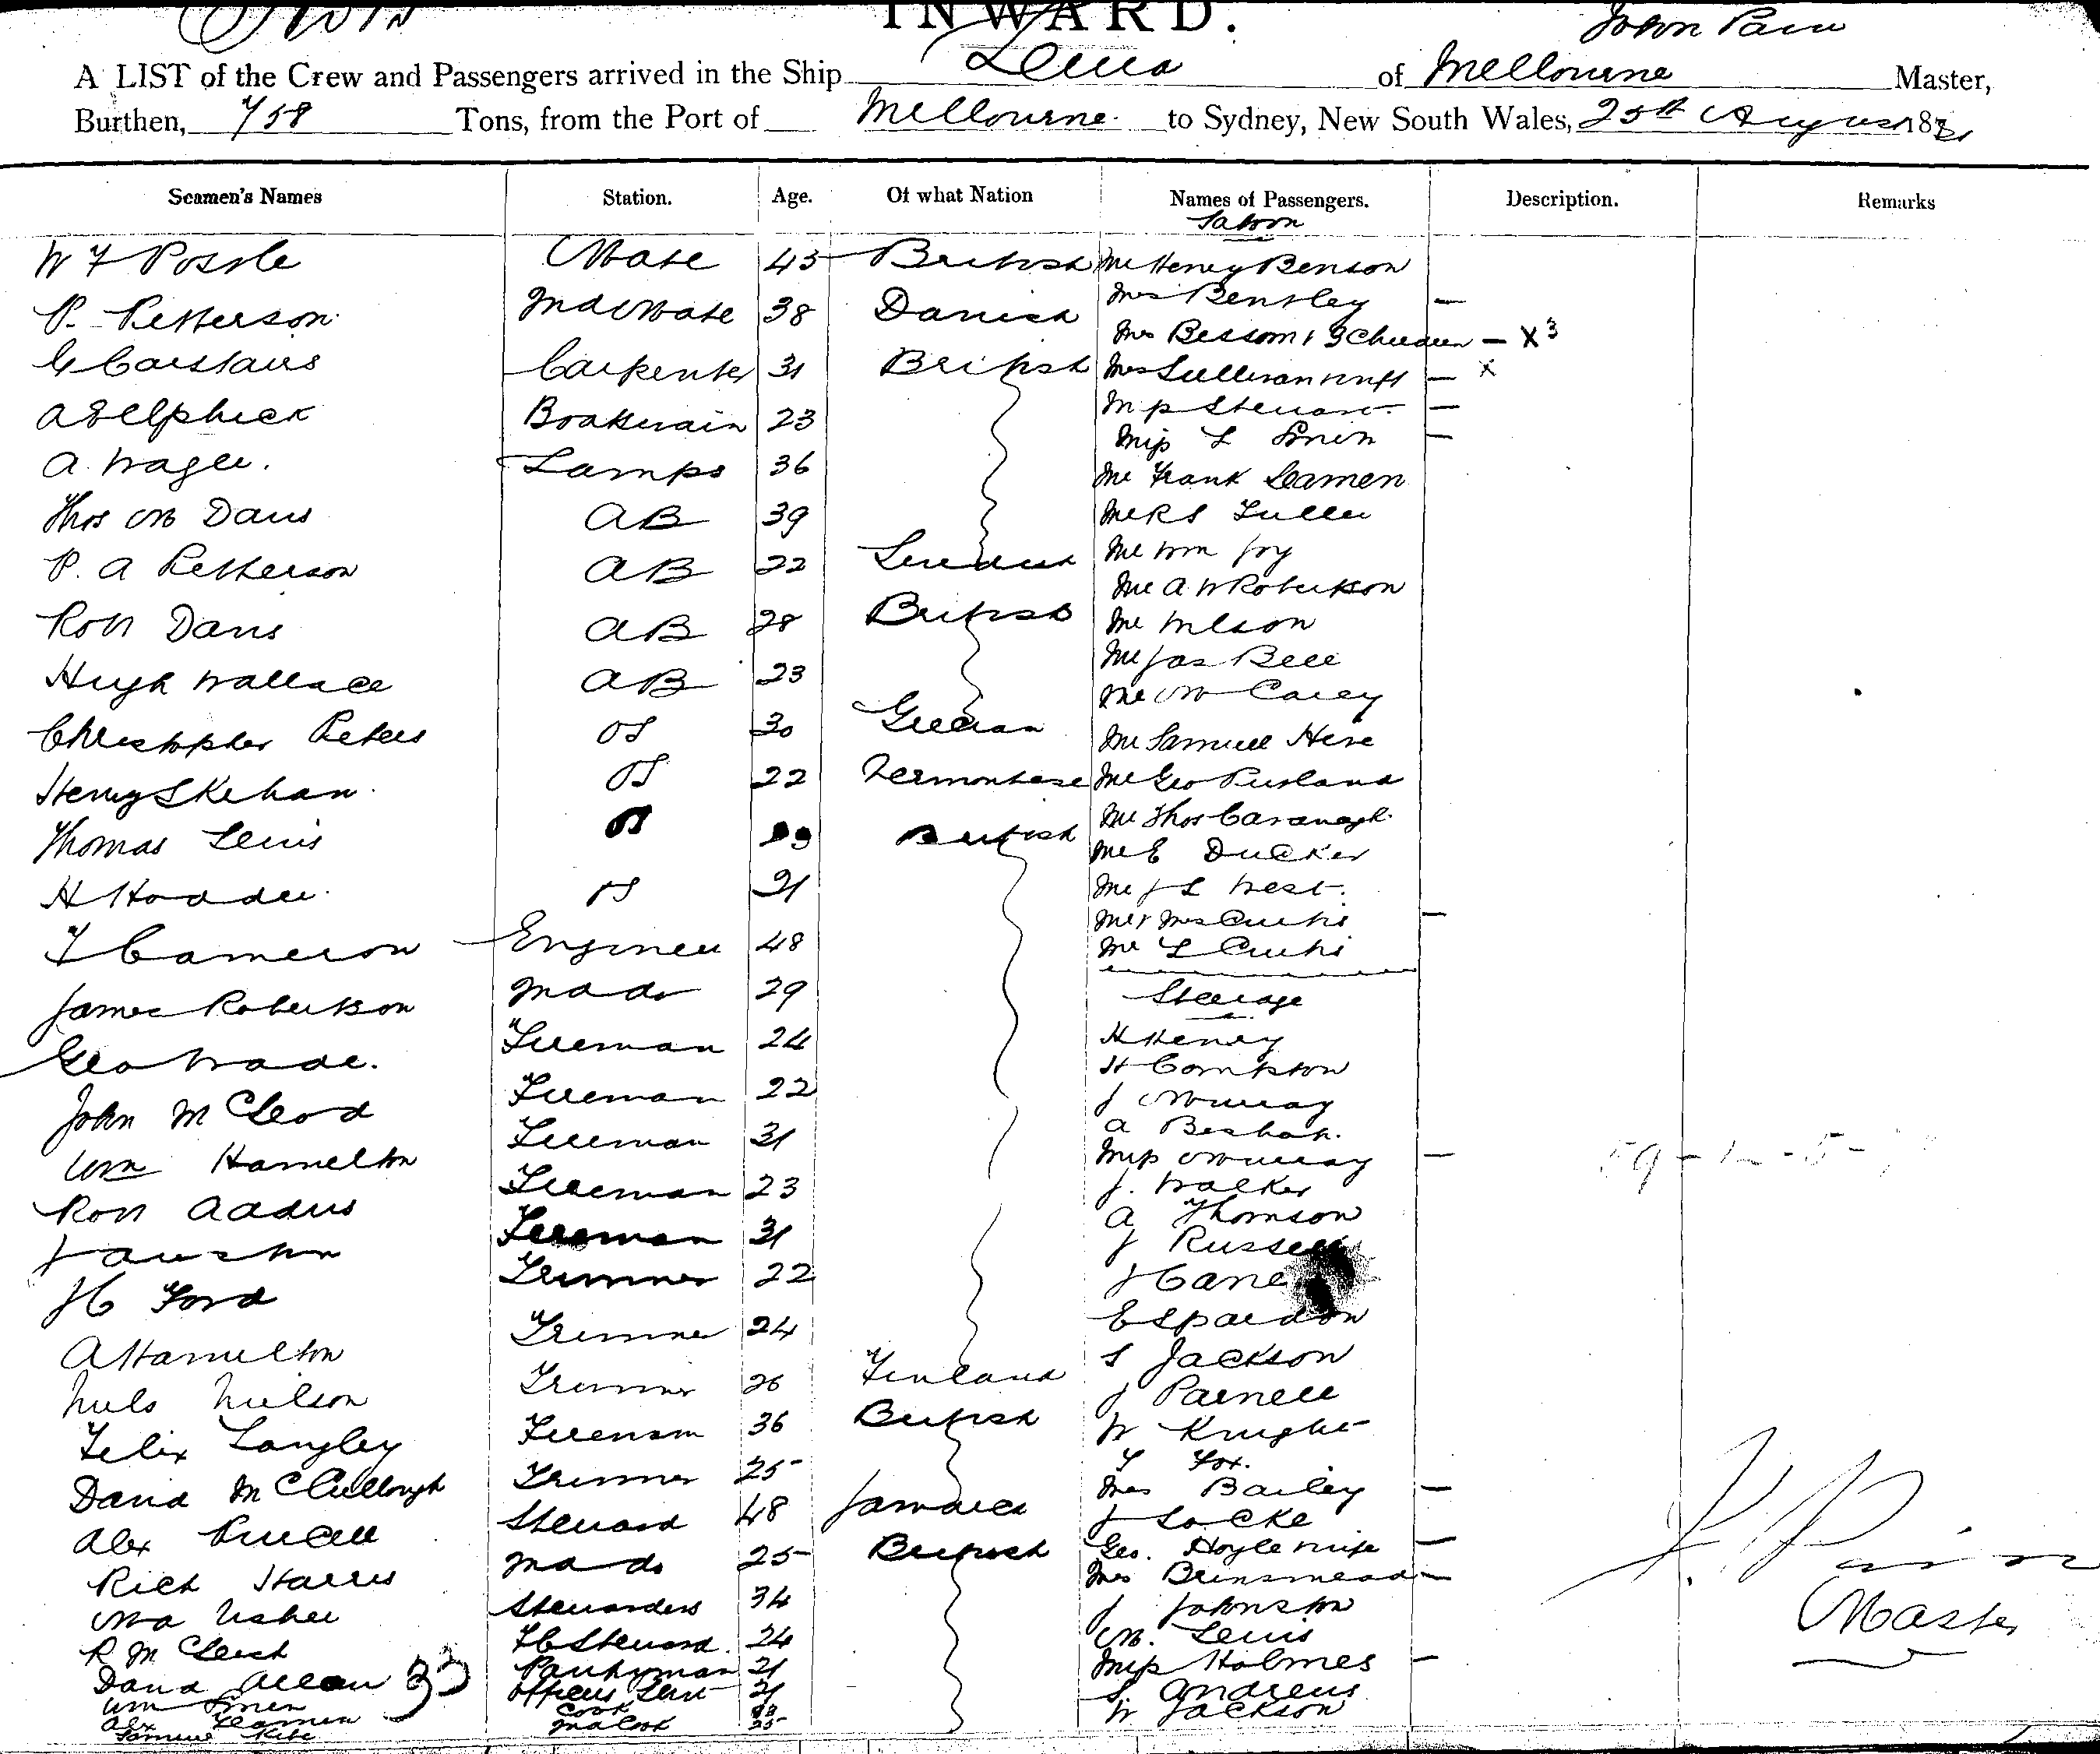 INWARD.
John Pain
A LIST of the Crew and Passengers arrived in the Ship of Melbourne Master,
Burthen, 758 Tons, from the Port of Melbourne to Sydney, New South Wales, 25th August 187
Seamen's Names Station. Age. Of what Nation Names of Passengers. Description. Remarks
Saloon
W F Mate 45 British Mr Henry Benson
P. Petterson 2nd Mate 38 Danish Mrs Bentley —
Mrs Bessom & 3 Children — X3
G Carstairs Carpenter 31 British Mrs Sullivan & Inft — X
A Elphick Boatswain 23 Miss Stewart —
Miss L —
A. Wager. Lamps 36 Mr Frank Seamen
Thos M Davis AB 39 Mr R S Fuller
P. A Petterson AB 22 Mr Wm Joy
Mr A W Robertson
Robt Davis AB 28 British Mr Wilson
Hugh Wallace AB 23 Mr Jas Bell
Mr M Carey
Christopher Peters OS 30 Grecian Mr Samuel
Henry Skehan OS 22 Mr Geo
Thomas Lewis OS British Mr Thos Cavanagh
Mr E Ducker
H Hodder OS 21 Mr J L West.
Mr & Mrs Curtis —
T Cameron Engineer 48 Mr L Curtis
James Robertson 2nd do 29 Steerage
Geo Wade. Fireman 24 H Henry
H Compton
John McLeod Fireman 22 J Murray
A
Wm Hamilton Fireman 31 Miss Murray —
Robt Fireman 23 J. Walker
A Thomson
J Austin Fireman 31 J Russell
J C Ford Trimmer 22 J Cane
A Hamilton Trimmer 24 E
S Jackson
Nils Nielson Trimmer 26 Finland J Parnell
Felix Langley Fireman 36 British W Knight
T Fox.
David McCullough Trimmer 25 Mrs Bailey —
Alex Purcell Steward 48 Jamaica J Locke
Rich Harris 2nd do 25 British Geo. Hoyle & wife —
Mrs Brinsmead —
Ma Usher Stewardess 34 J Johnston
R McLeish F C Steward. 24 M. Lewis
David Allan 33 Pantryman 21 Miss Holmes —
Wm Officers Servt 21 S. Andrews
Alex Cook W Jackson
Samuel 2nd Cook 25
J. Pain
Master